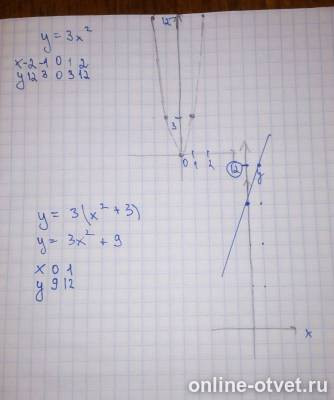 y = 3x²
x -2 -1 0 1 2
y 12 3 0 3 12
12
3
0 1 2
y = 3(x² + 3)
y = 3x² + 9
x 0 1
y 9 12
12 y
x
online-otvet.ru